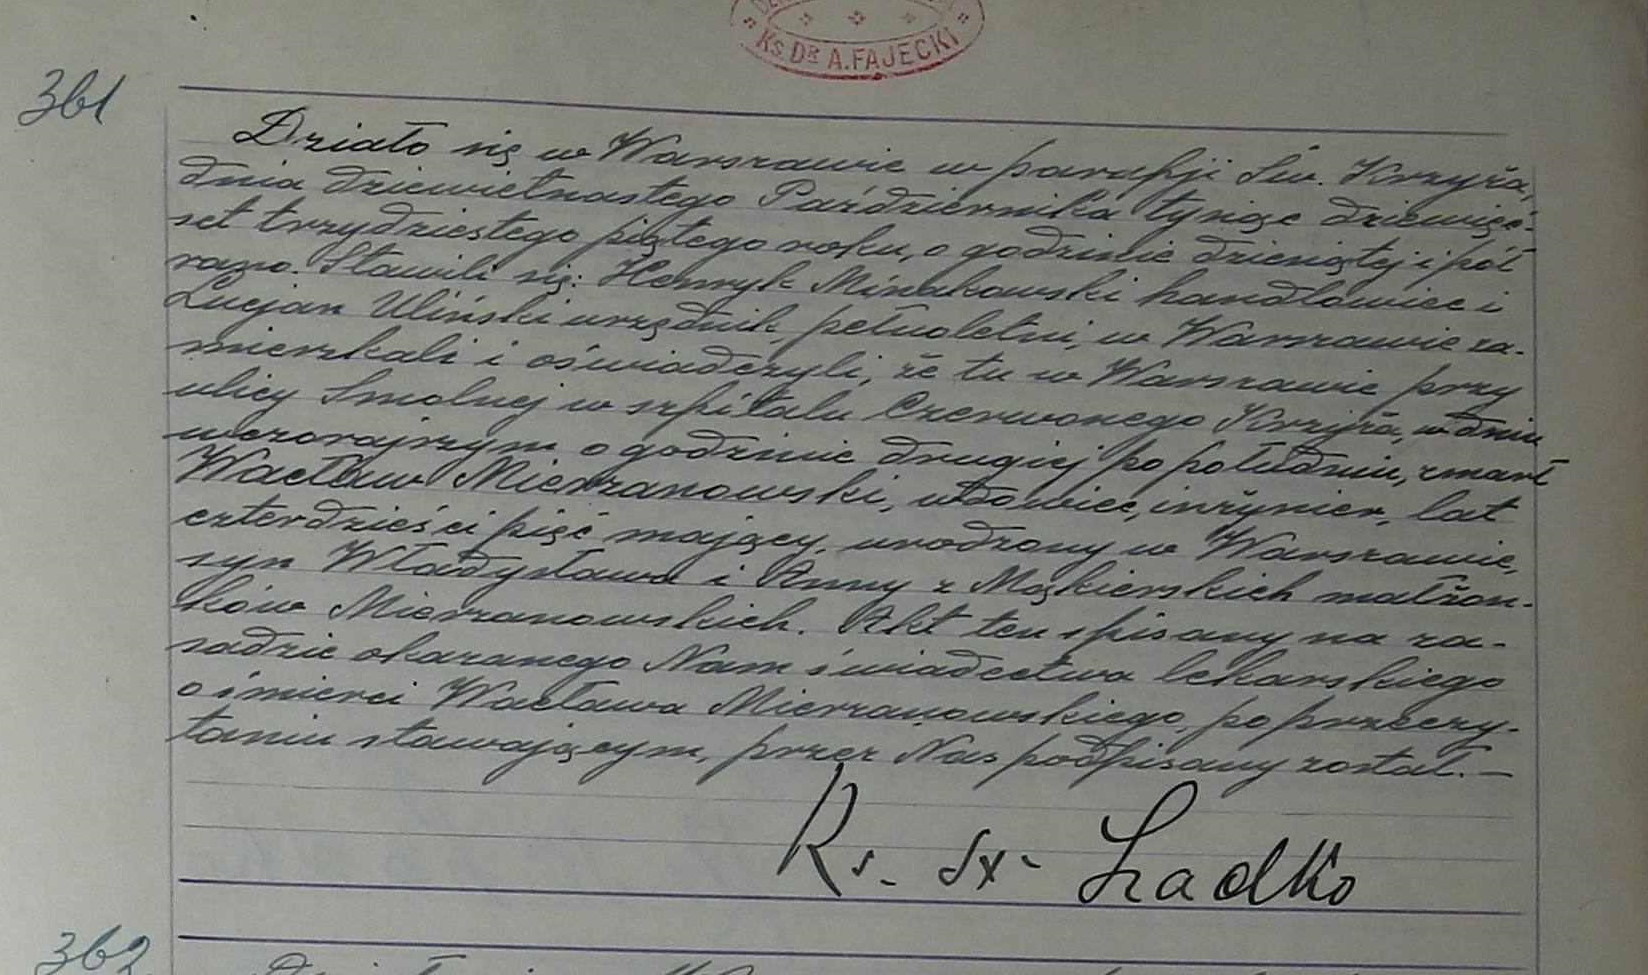 Ks. Dr A. FAJECKI
361
Działo się w Warszawie w parafji Św. Krzyża,
dnia dziewiętnastego Października tysiąc dziewięć-
set trzydziestego piątego roku, o godzinie dziesiątej i pół
rano. Stawili się: Henryk Minakowski handlowiec i
Lucjan Uliński urzędnik, pełnoletni, w Warszawie za-
mieszkali i oświadczyli, że tu w Warszawie przy
ulicy Smolnej w szpitalu Czerwonego Krzyża, w dniu
wczorajszym o godzinie drugiej po południu, zmarł
Wacław Mierzanowski, wdowiec, inżynier, lat
czterdzieści pięć mający, urodzony w Warszawie,
syn Władysława i Anny z Mąkierskich małżon-
ków Mierzanowskich. Akt ten spisany na za-
sadzie okazanego Nam świadectwa lekarskiego
o śmierci Wacława Mierzanowskiego, po przeczy-
taniu stawającym, przez Nas podpisany został. —
Ks.
362